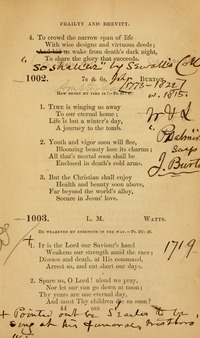 FRAILTY AND BREVITY.
4. To crowd the narrow span of life
With wise designs and virtuous deeds;
And bid us wake from death's dark night,
To share the glory that succeeds.
1002. 7s & 6s. BURTON.
1773-1822
HOW SHORT MY TIME IS!
w. 1815.
1. TIME is winging us away
To our eternal home;
Life is but a winter's day,
A journey to the tomb.
2. Youth and vigor soon will flee,
Blooming beauty lose its charms;
All that's mortal soon shall be
Enclosed in death's cold arms.
says
J. Burton
3. But the Christian shall enjoy
Health and beauty above,
Far beyond the world's alloy,
Secure in Jesus' love.
1003. L. M. WATTS.
HE WEAKENED MY STRENGTH IN THE WAY.
1719
1. It is the Lord our Saviour's hand
Weakens our strength amid the race;
Disease and death, at His command,
Arrest us, and cut short our days.
2. Spare us, O Lord! aloud we pray,
Nor let our sun go down at noon;
Thy years are one eternal day,
And must Thy children die so soon?
44
+ Pointed out by to be
sung at his funeral